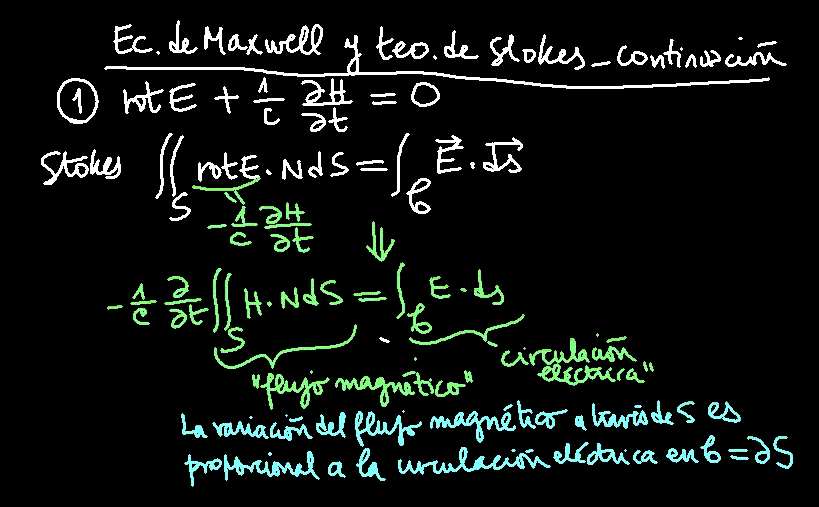 Ec. de Maxwell y teo. de Stokes - continuación
① rot E + 1/c ∂H/∂t = 0
Stokes ∬_S rot E · N dS = ∫_C E⃗ · ds⃗
-1/c ∂H/∂t
⇓
-1/c ∂/∂t ∬_S H · N dS = ∫_C E · ds
"flujo magnético" circulación eléctrica"
La variación del flujo magnético a través de S es
proporcional a la circulación eléctrica en C = ∂S